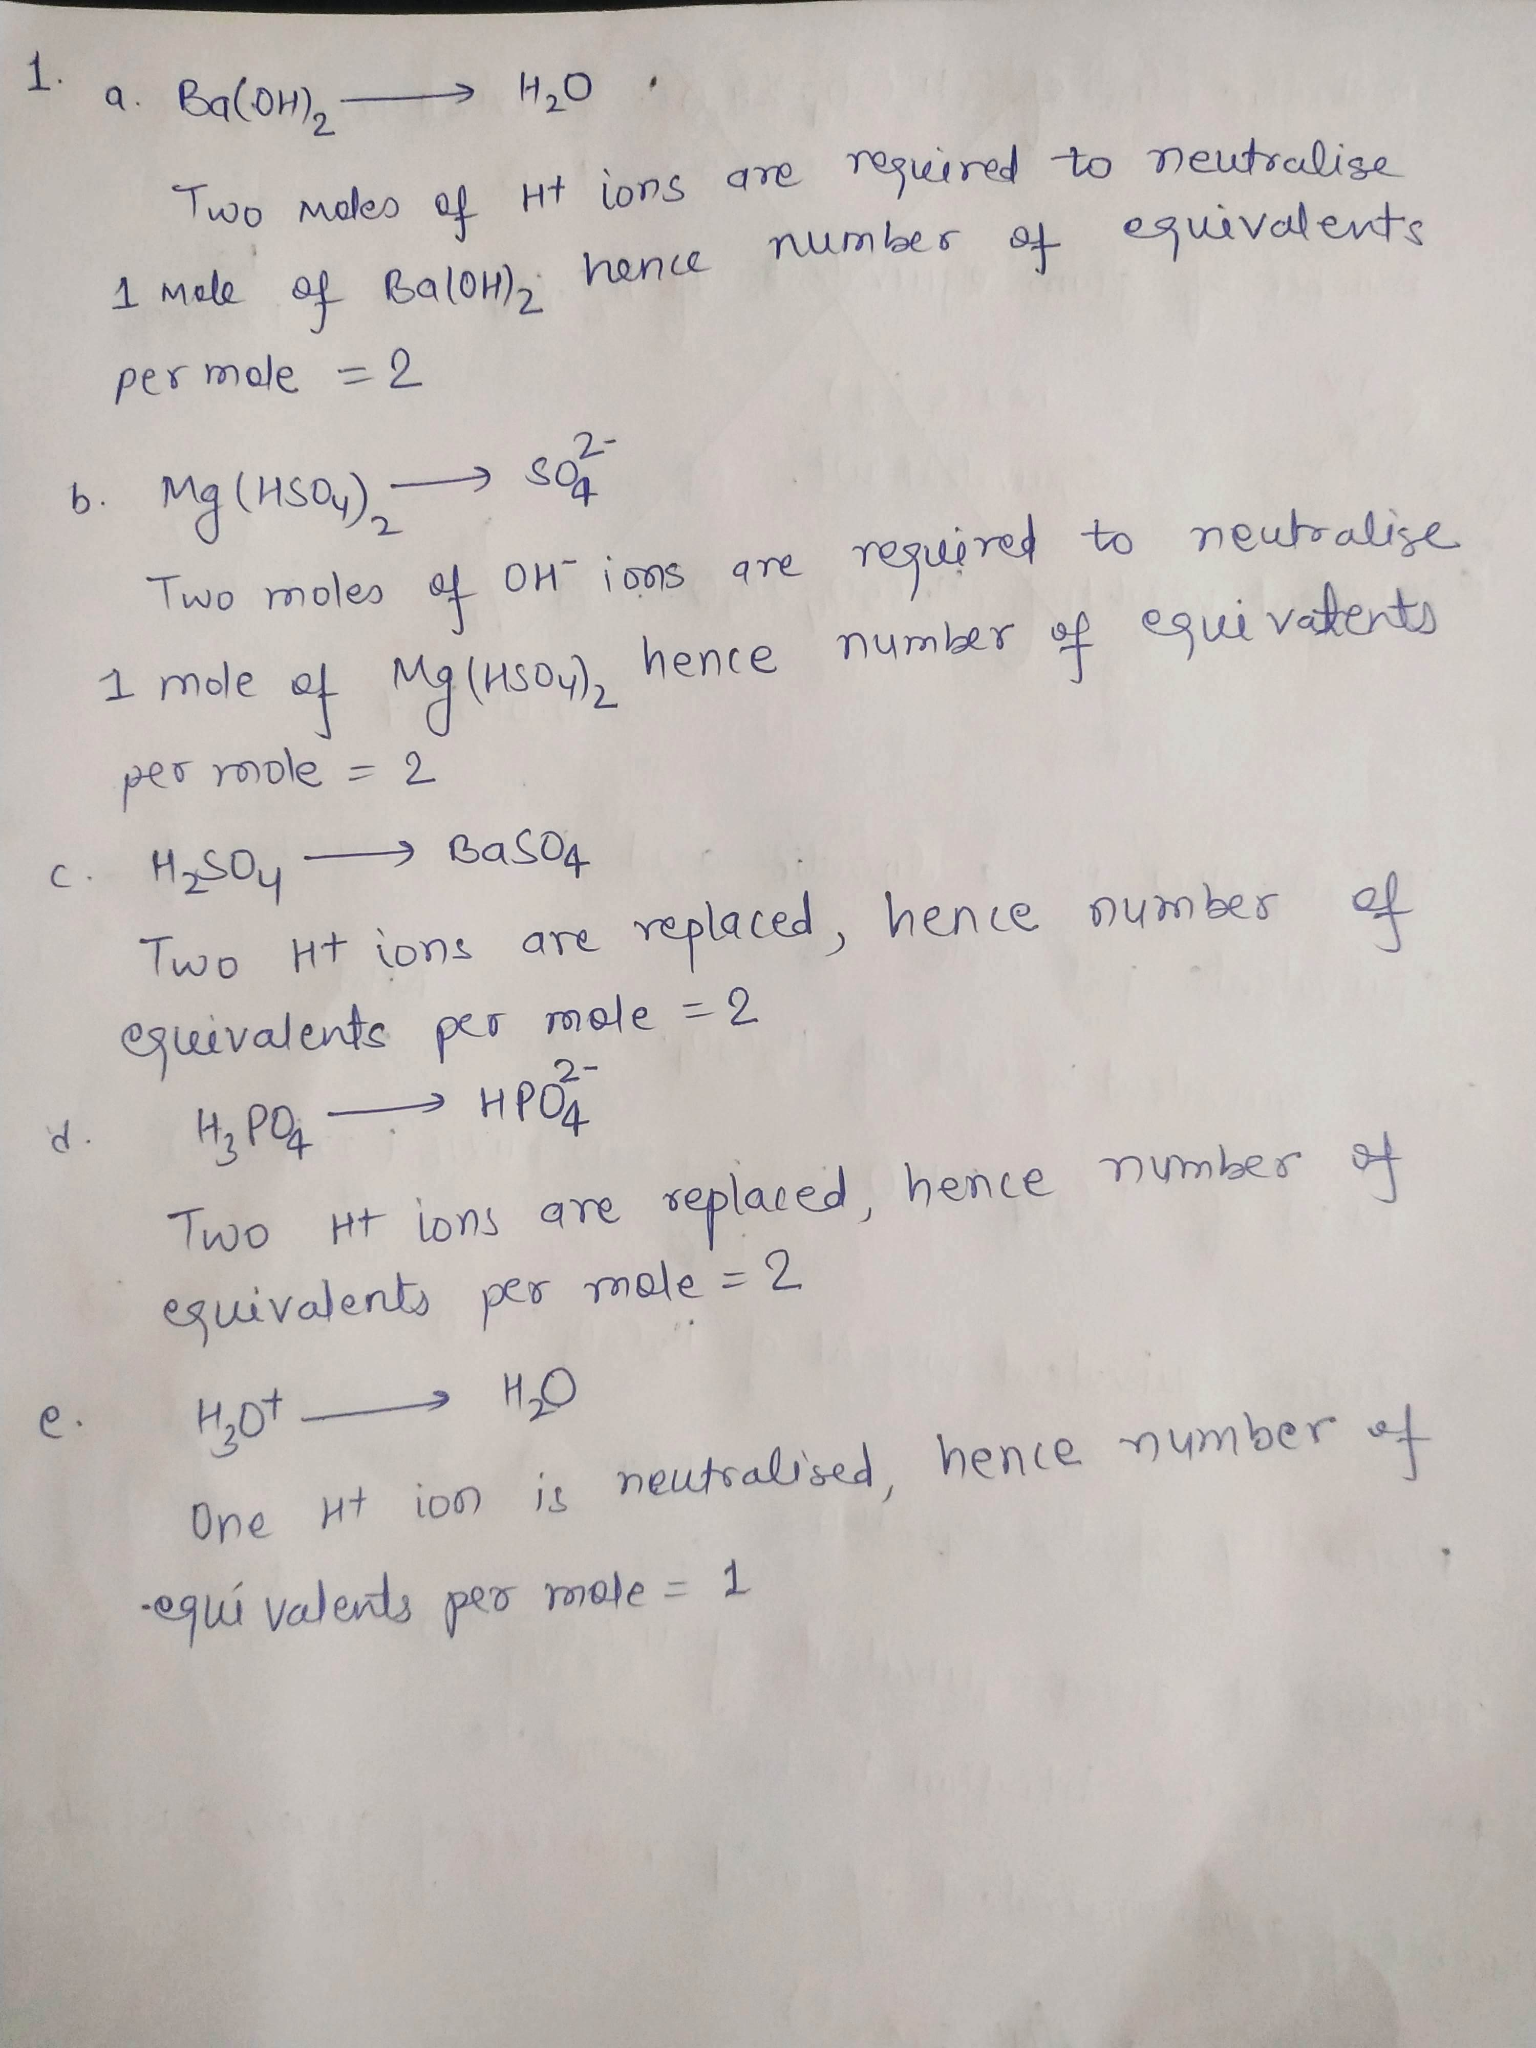 1. a. Ba(OH)₂ ⟶ H₂O
Two moles of H⁺ ions are required to neutralise
1 mole of Ba(OH)₂ hence number of equivalents
per mole = 2
b. Mg(HSO₄)₂ ⟶ SO₄²⁻
Two moles of OH⁻ ions are required to neutralise
1 mole of Mg(HSO₄)₂ hence number of equivalents
per mole = 2
c. H₂SO₄ ⟶ BaSO₄
Two H⁺ ions are replaced, hence number of
equivalents per mole = 2
d. H₃PO₄ ⟶ HPO₄²⁻
Two H⁺ ions are replaced, hence number of
equivalents per mole = 2
e. H₃O⁺ ⟶ H₂O
One H⁺ ion is neutralised, hence number of
equivalents per mole = 1